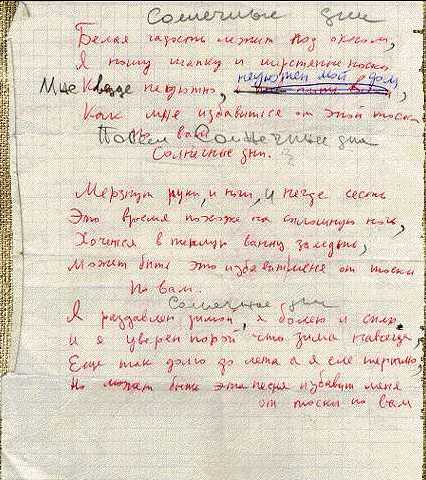 Солнечные дни
Белая гадость лежит под окном,
Я ношу шапку и шерстяные носки
Мне везде неуютно, неуютен мой дом,
Как мне избавиться от этой тоски
По вам
Солнечные дни
Солнечные дни.
Мерзнут руки, и ноги, и негде сесть
Это время похоже на сплошную ночь,
Хочется в теплую ванну залезть,
Может быть это избавит меня от тоски
По вам.
Солнечные дни
Я раздавлен зимой, я болею и сплю.
И я уверен порой что зима навсегда,
Еще так долго до лета а я еле терплю,
Но может быть эта песня избавит меня
от тоски по вам